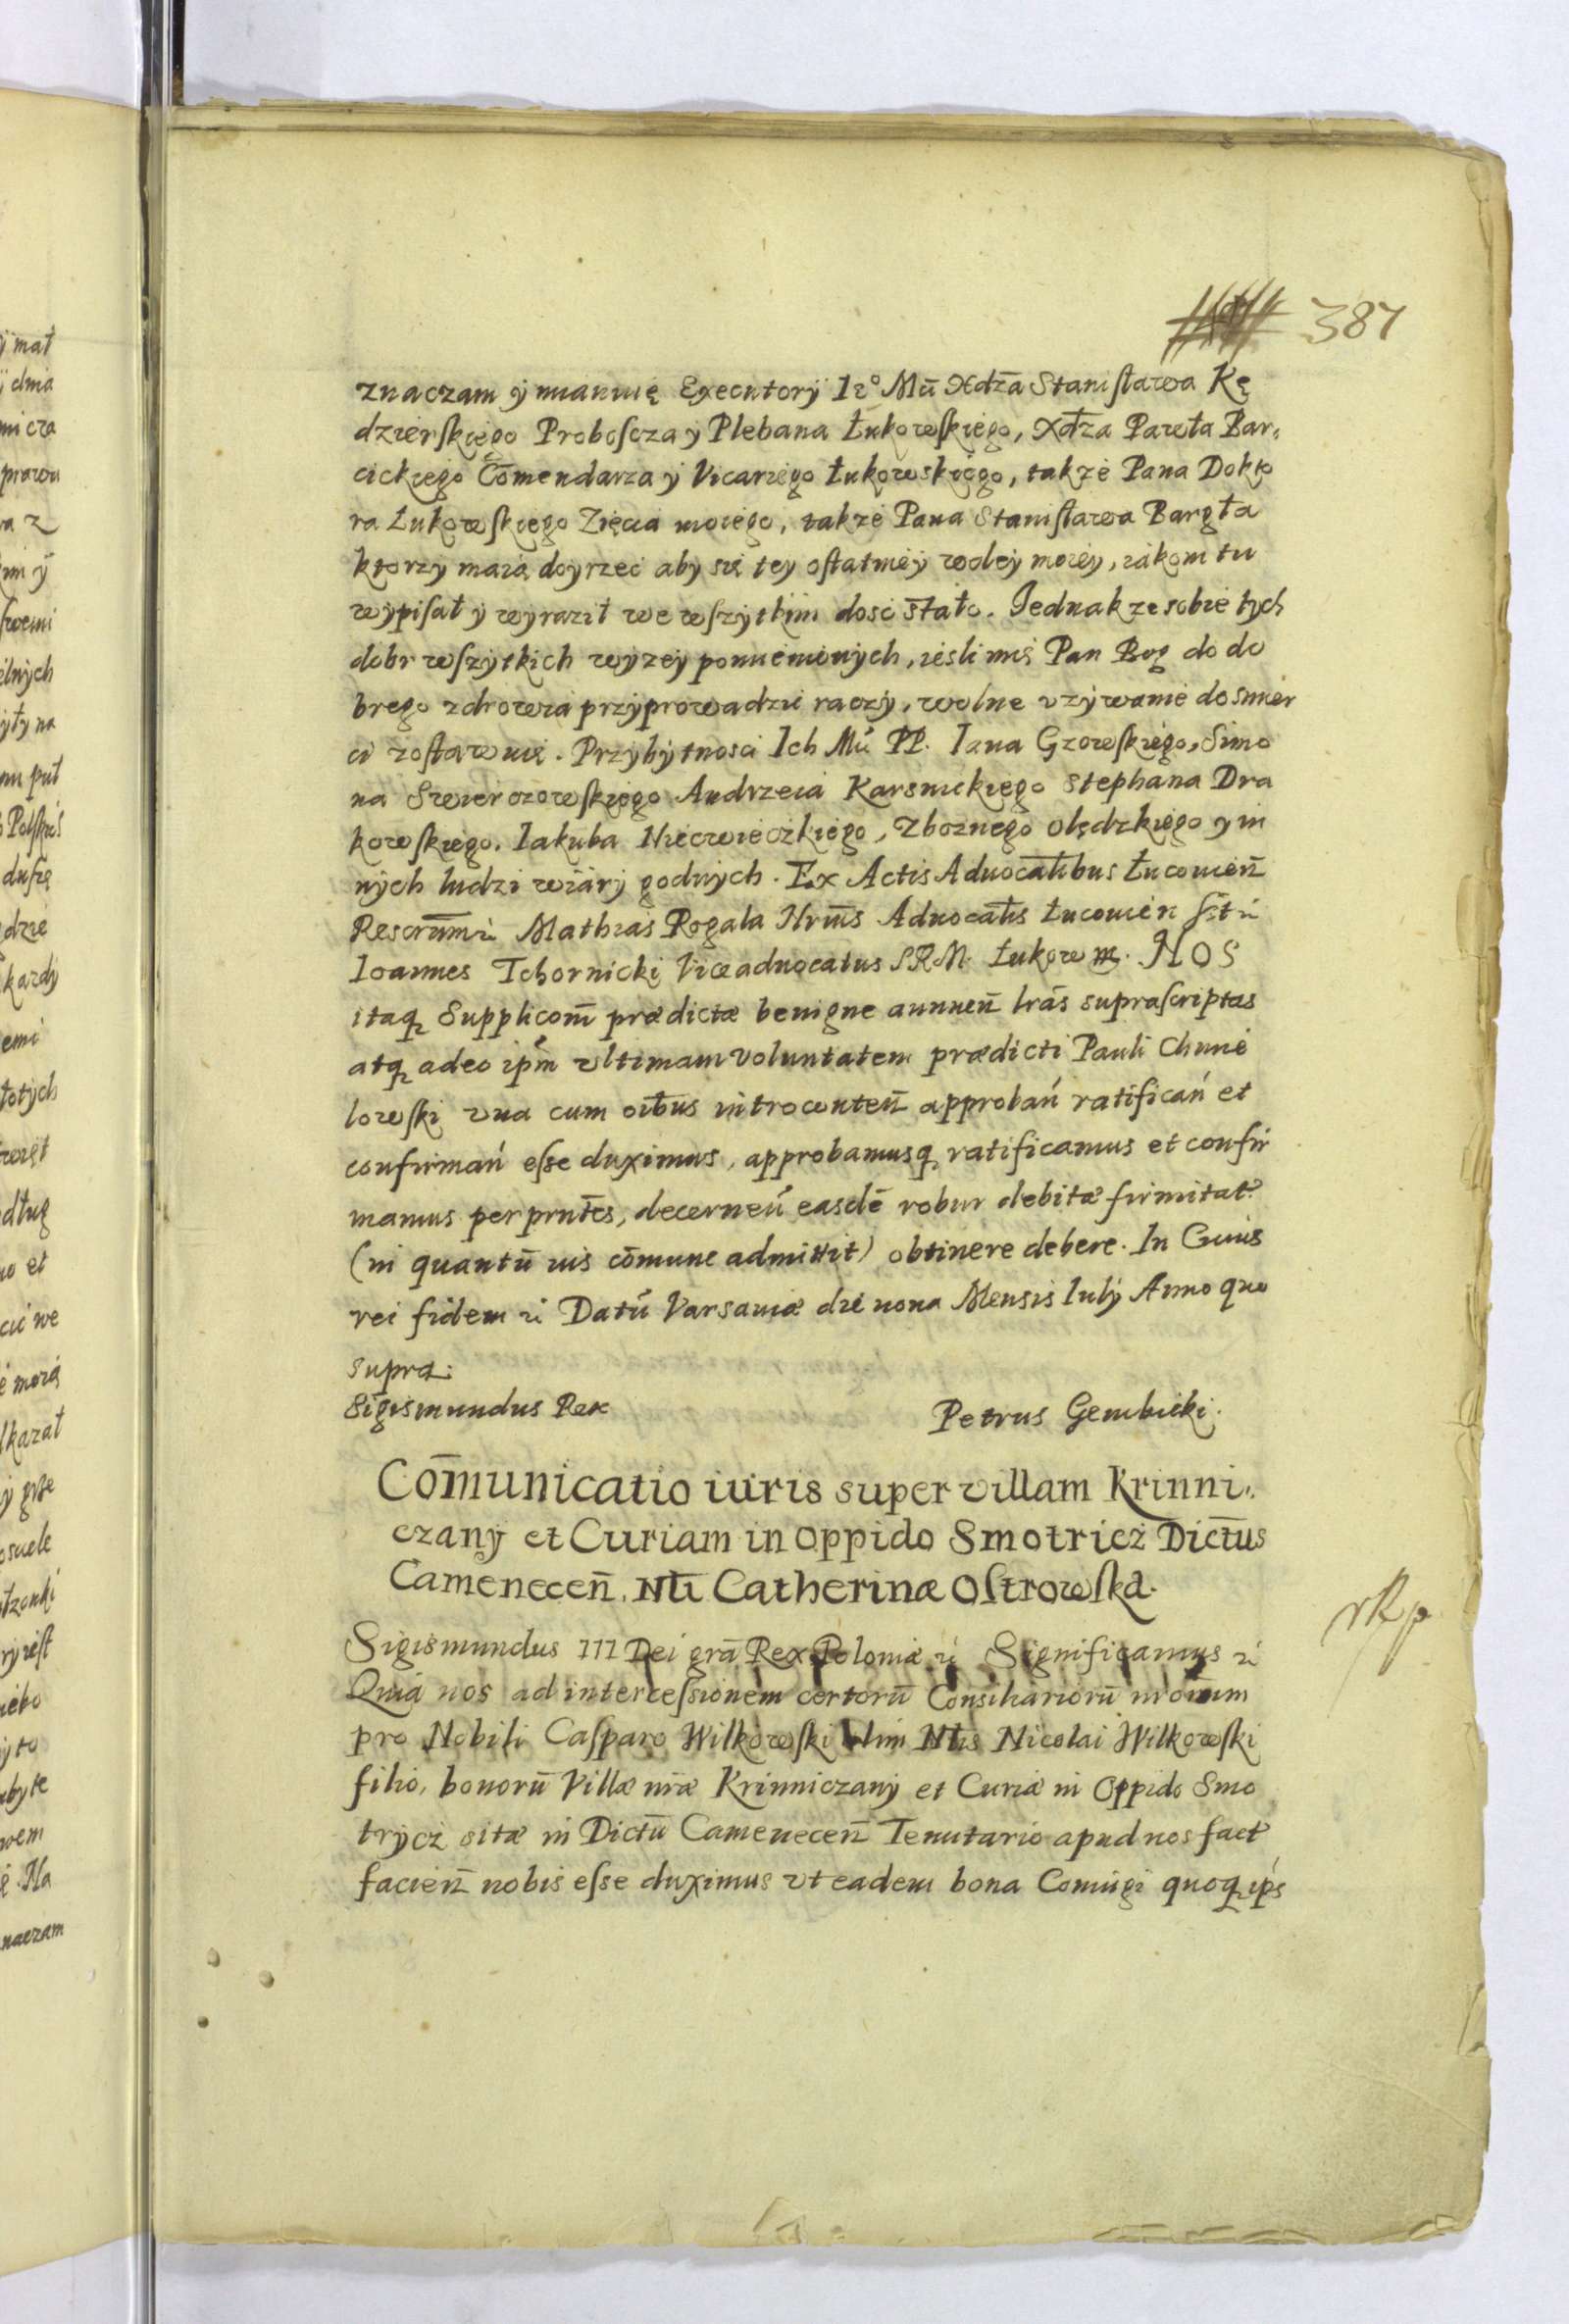 387
znaczam y mianuię Executory Ie° Mũ Xdza Stanisława Kę
dzierskiego Proboscza y Plebana Łukowskiego, Xdza Pawła Bar,
cickiego Com̃endarza y Vicariego Łukowskiego, także Pana Dokto
ra Łukowskiego Zięcia moiego, także Pana Stanisława Bargła
ktorzy maią doyrzeć aby się tey ostatniey woley moiey, iakom tu
wypisał y wyraził we wszytkim dosić stało. Jednakze sobie tych
dobr wszytkich wyzey pomienionych, iesli mię Pan Bog do do
brego zdrowia przyprowadzić raczy, wolne vzywanie do smier
ci zostawuię. Przybytnosci Ich Mć PP. Iana Gzowskiego, Simo
na Swierczowskiego Andrzeia Karsnickiego Stephana Dra
kowskiego. Iakuba Niecwieczkiego, Zboznego Olędzkiego y in
nych ludzi wiary godnych. Ex Actis Aduocat̃ibus Łucouieñ
Rescrum̃ Mathias Rogala Nr̃ius Aduocat̃is Łucouien
Ioannes Tchornicki Viceaduocatus SRM. Łukow m. NOS
itaq Supplicom̃ prædictæ benigne annueñ lrãs suprascriptas
atq adeo ipm̃ vltimam voluntatem prædicti Pauli Chmie
lowski vna cum oib̃us introconteñ approbań ratificań et
confirmań esse duximus, approbamusq ratificamus et confir
mamus per prnt̃es, decerneń easdē robur debitæ firmitat
(in quantū ius cōmune admittit) obtinere debere. In Cuius
rei fidem Datū Varsauiæ die nona Mensis Iuly Anno quo
supra.
Sigismundus Rex Petrus Gembicki.
Com̃unicatio iuris super villam Krinni,
czany et Curiam in oppido Smotricz Dict̃us
Cameneceñ. Nt̃i Catherinæ Ostrowska.
rkp
Sigismundus III Dei grã Rex Poloniæ Significamus
Quia nos ad intercessionem certorū Consiliariorū nrorum
pro Nobili Casparo Wilkowski olim Nt̃is Nicolai Wilkowski
filio, bonorū Villæ nræ Krinniczany et Curiæ in Oppido Smo
trycz sitæ in Dictū Cameneceñ Tenutario apud nos fact
facieñ nobis esse duximus vt eadem bona Coniugi quoq ips